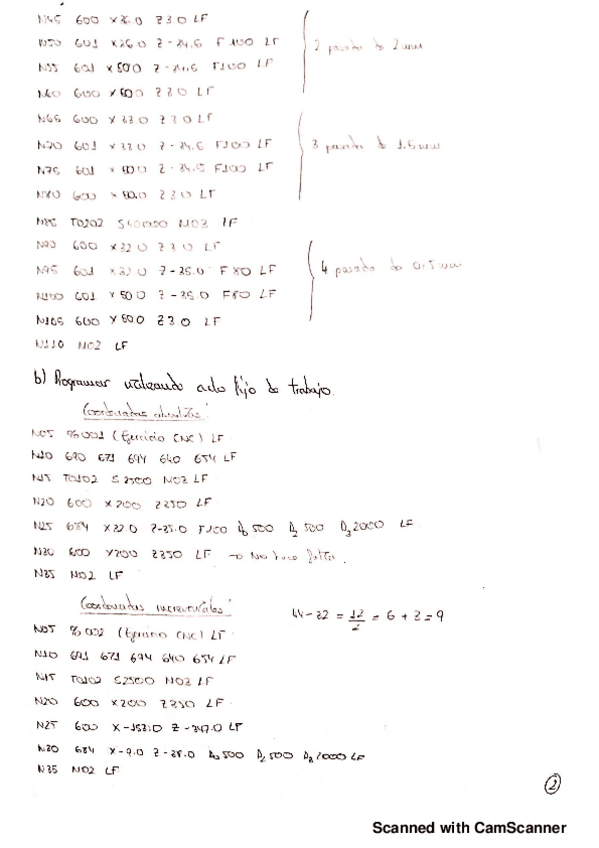 N45 G00 X26.0 Z3.0 LF
N50 G01 X26.0 Z-24.5 F100 LF
2 pasada de 2mm
N55 G01 X50.0 Z-24.5 F100 LF
N60 G00 X50.0 Z3.0 LF
N65 G00 X23.0 Z3.0 LF
N70 G01 X23.0 Z-24.5 F100 LF
3 pasada de 1.5mm
N75 G01 X50.0 Z-24.5 F100 LF
N80 G00 X50.0 Z3.0 LF
N85 T0202 M03 LF
N90 G00 X22.0 Z3.0 LF
N95 G01 X22.0 Z-25.0 F80 LF
4 pasada de 0.5mm
N100 G01 X50.0 Z-25.0 F80 LF
N105 G00 X50.0 Z3.0 LF
N110 M02 LF
b) Programar utilizando ciclo fijo de trabajo.
Coordenadas absolutas:
N05 %001 (Ejercicio CNC) LF
N10 G90 G71 G94 G40 G54 LF
N15 T0102 S2500 M03 LF
N20 G00 X200 Z350 LF
N25 G84 X22.0 F100 500 500 2000 LF
N30 G00 X200 Z350 LF → No hace falta.
N35 M02 LF
Coordenadas incrementales:
44-32 = 12/2 = 6 + 3 = 9
N05 %002 (Ejercicio CNC) LF
N10 G91 G71 G94 G40 G54 LF
N15 T0102 S2500 M03 LF
N20 G00 X200 Z350 LF
N25 G00 X-153.0 Z-347.0 LF
N30 G84 X-9.0 500 500 LF
N35 M02 LF
2
Scanned with CamScanner